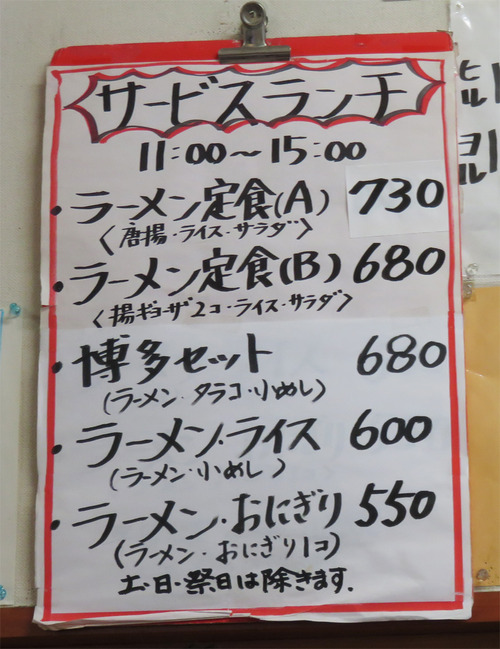 サービスランチ
11:00～15:00
・ラーメン定食(A) 730
〈唐揚・ライス・サラダ〉
・ラーメン定食(B) 680
〈揚ギョーザ2コ・ライス・サラダ〉
・博多セット 680
(ラーメン・タラコ・小めし)
・ラーメン・ライス 600
(ラーメン・小めし)
・ラーメン・おにぎり 550
(ラーメン・おにぎり1コ)
土・日・祭日は除きます.
ヒル
ヨル